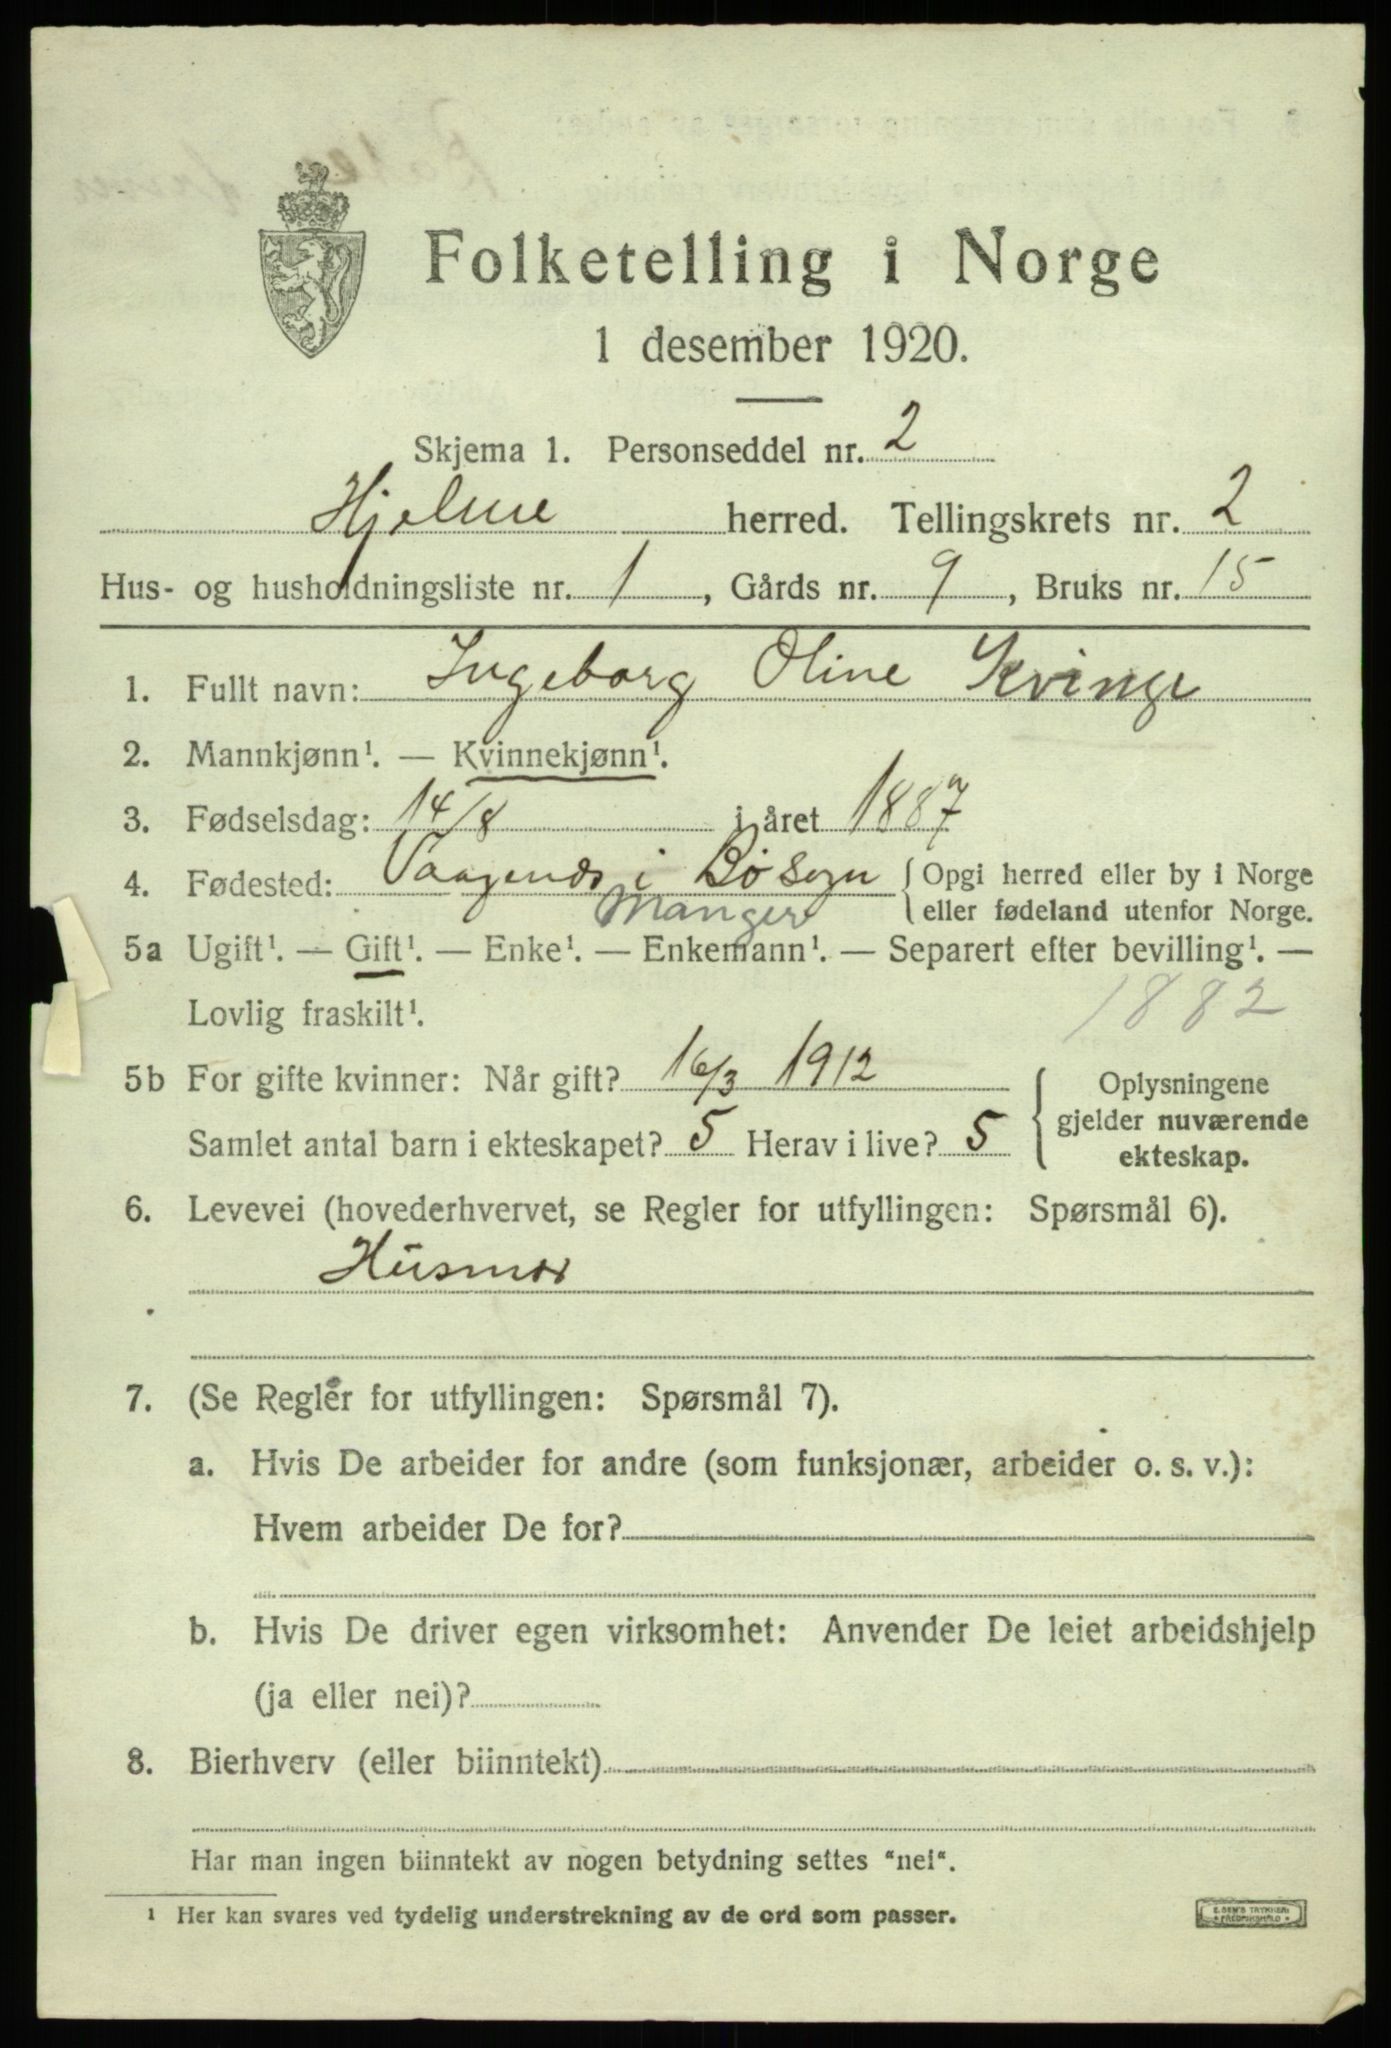 Folketelling i Norge
1 desember 1920.
Skjema 1. Personseddel nr. 2
Hjelme herred. Tellingskrets nr. 2
Hus- og husholdningsliste nr. 1, Gårds nr. 9, Bruks nr. 15
1. Fullt navn: Ingeborg Oline Kvinge
2. Mannkjønn¹. — Kvinnekjønn¹.
3. Fødselsdag: 14/8 i året 1887
4. Fødested: Vaagenes i Bø Sogn { Opgi herred eller by i Norge
Manger eller fødeland utenfor Norge.
5a Ugift¹. — Gift¹. — Enke¹. — Enkemann¹. — Separert efter bevilling¹. —
Lovlig fraskilt¹. 1882
5b For gifte kvinner: Når gift? 16/3 1912 { Oplysningene
gjelder nuværende
Samlet antal barn i ekteskapet? 5 Herav i live? 5 ekteskap.
6. Levevei (hovederhvervet, se Regler for utfyllingen: Spørsmål 6).
Husmor
7. (Se Regler for utfyllingen: Spørsmål 7).
a. Hvis De arbeider for andre (som funksjonær, arbeider o. s. v.):
Hvem arbeider De for?
b. Hvis De driver egen virksomhet: Anvender De leiet arbeidshjelp
(ja eller nei)?
8. Bierhverv (eller biinntekt)
Har man ingen biinntekt av nogen betydning settes "nei".
¹ Her kan svares ved tydelig understrekning av de ord som passer.